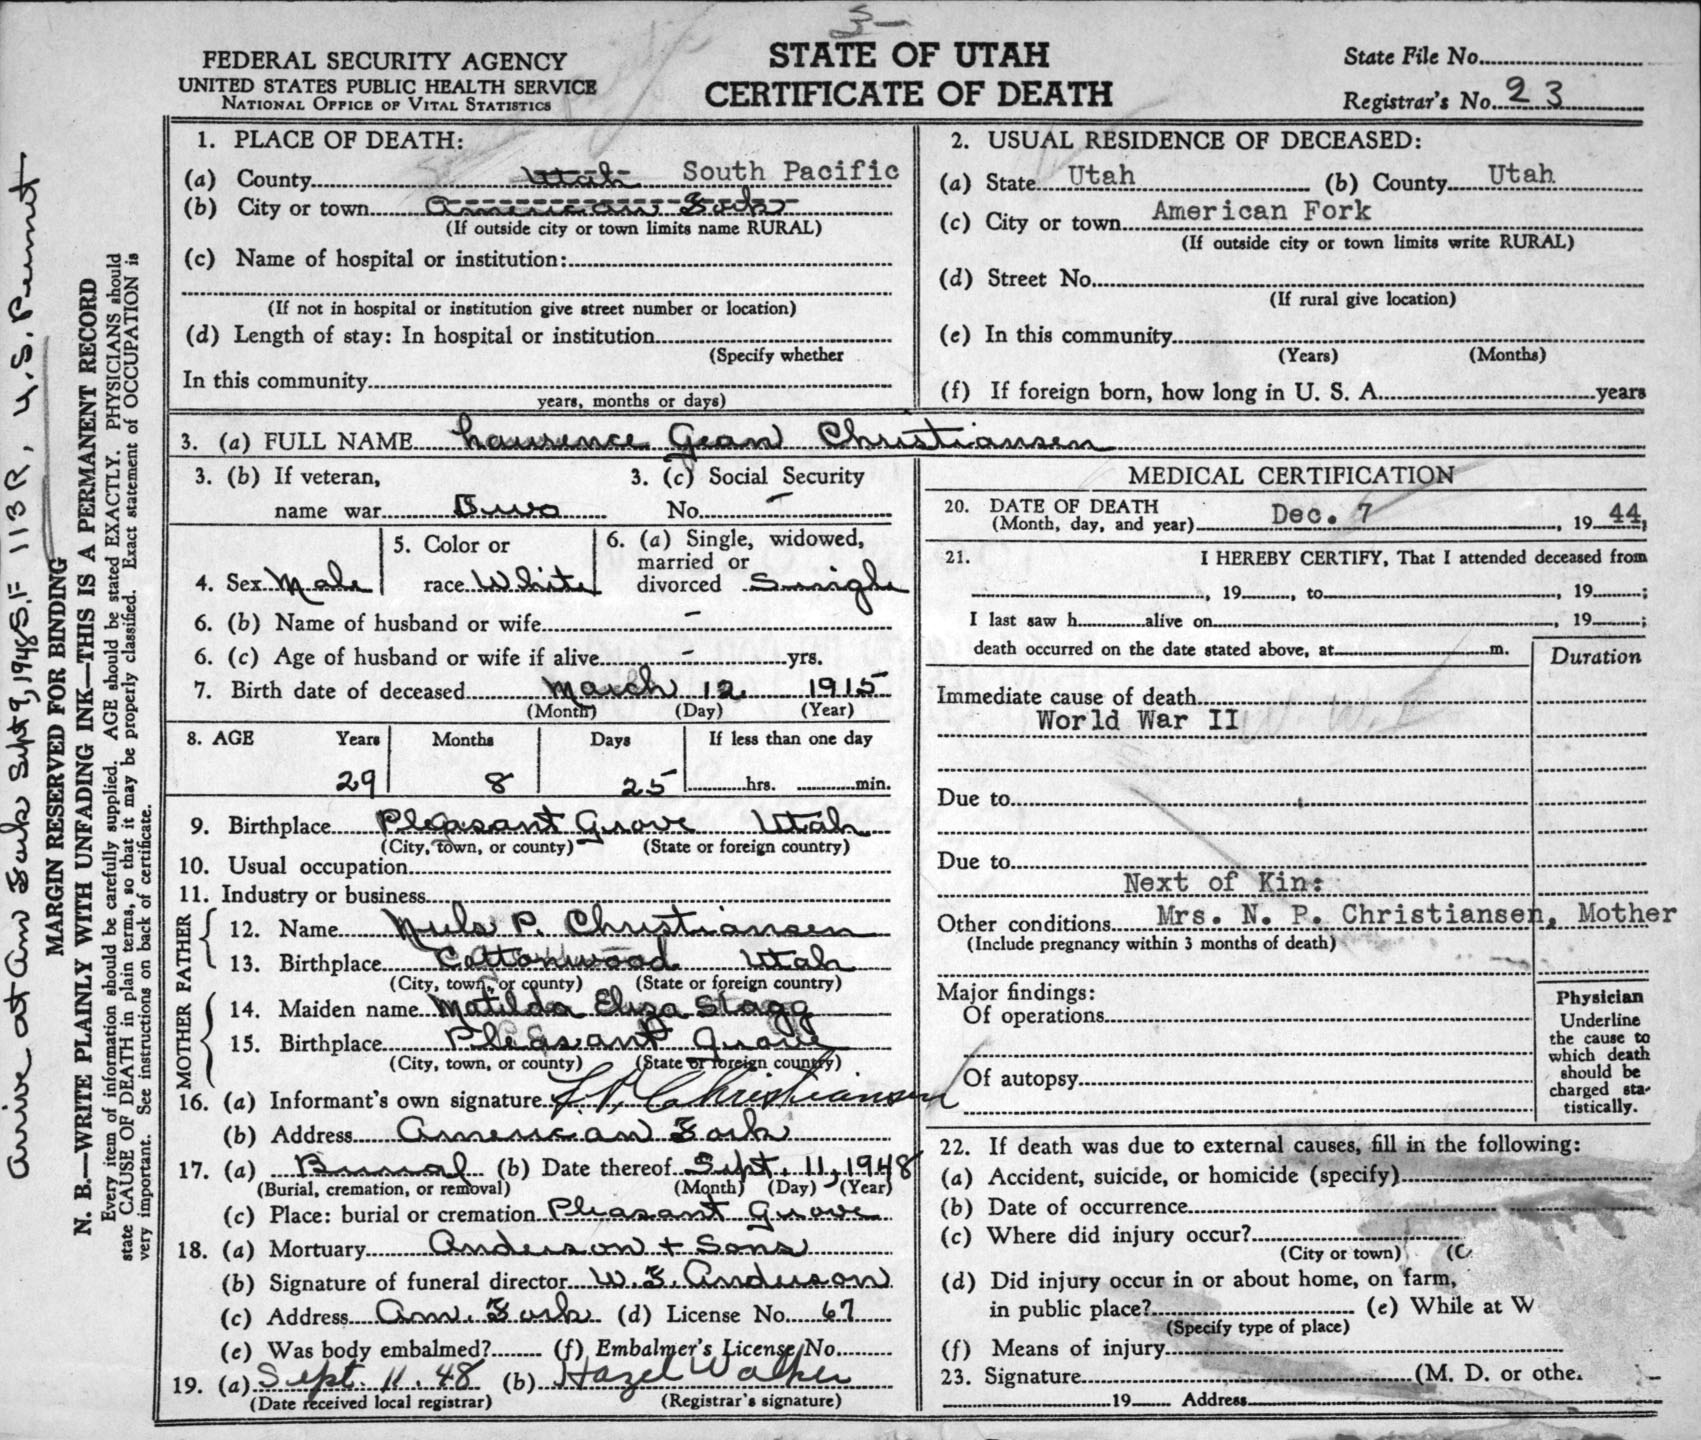 3-
FEDERAL SECURITY AGENCY
UNITED STATES PUBLIC HEALTH SERVICE
NATIONAL OFFICE OF VITAL STATISTICS
STATE OF UTAH
CERTIFICATE OF DEATH
State File No.
Registrar's No. 23
1. PLACE OF DEATH:
(a) County Utah South Pacific
(b) City or town American Fork
(If outside city or town limits name RURAL)
(c) Name of hospital or institution:
(If not in hospital or institution give street number or location)
(d) Length of stay: In hospital or institution
(Specify whether
In this community
years, months or days)
2. USUAL RESIDENCE OF DECEASED:
(a) State Utah (b) County Utah
(c) City or town American Fork
(If outside city or town limits write RURAL)
(d) Street No.
(If rural give location)
(e) In this community
(Years) (Months)
(f) If foreign born, how long in U. S. A. years
3. (a) FULL NAME Laurence Gean Christiansen
3. (b) If veteran, 3. (c) Social Security
name war Two No. -
4. Sex Male
5. Color or
race White
6. (a) Single, widowed,
married or
divorced Single
6. (b) Name of husband or wife -
6. (c) Age of husband or wife if alive - yrs.
7. Birth date of deceased March 12 1915
(Month) (Day) (Year)
8. AGE Years Months Days If less than one day
29 8 25 hrs. min.
9. Birthplace Pleasant Grove Utah
(City, town, or county) (State or foreign country)
10. Usual occupation
11. Industry or business
FATHER
12. Name Niels P. Christiansen
13. Birthplace Cottonwood Utah
(City, town, or county) (State or foreign country)
MOTHER
14. Maiden name Matilda Eliza Stagg
15. Birthplace Pleasant Grove
(City, town, or county) (State or foreign country)
16. (a) Informant's own signature L. P. Christiansen
(b) Address American Fork
17. (a) Burial (b) Date thereof Sept. 11, 1948
(Burial, cremation, or removal) (Month) (Day) (Year)
(c) Place: burial or cremation Pleasant Grove
18. (a) Mortuary Anderson + Sons
(b) Signature of funeral director W. F. Anderson
(c) Address Am. Fork (d) License No. 67
(e) Was body embalmed? (f) Embalmer's License No.
19. (a) Sept. 11. 48 (b) Hazel Walker
(Date received local registrar) (Registrar's signature)
MEDICAL CERTIFICATION
20. DATE OF DEATH
(Month, day, and year) Dec. 7, 19 44,
21. I HEREBY CERTIFY, That I attended deceased from
, 19 , to , 19 ;
I last saw h alive on , 19 ;
death occurred on the date stated above, at m.
Duration
Immediate cause of death
World War II W. W. I
Due to
Due to
Next of Kin:
Other conditions Mrs. N. P. Christiansen, Mother
(Include pregnancy within 3 months of death)
Major findings:
Of operations
Of autopsy
Physician
Underline
the cause to
which death
should be
charged sta-
tistically.
22. If death was due to external causes, fill in the following:
(a) Accident, suicide, or homicide (specify)
(b) Date of occurrence
(c) Where did injury occur?
(City or town) (C
(d) Did injury occur in or about home, on farm,
in public place? (e) While at W
(Specify type of place)
(f) Means of injury
23. Signature (M. D. or othe.
19 Address
Arrive at Am Fork Sept 9, 1948 S.F. 113 R, U.S. Permit
MARGIN RESERVED FOR BINDING
N. B.—WRITE PLAINLY WITH UNFADING INK—THIS IS A PERMANENT RECORD
Every item of information should be carefully supplied. AGE should be stated EXACTLY. PHYSICIANS should
state CAUSE OF DEATH in plain terms, so that it may be properly classified. Exact statement of OCCUPATION is
very important. See instructions on back of certificate.